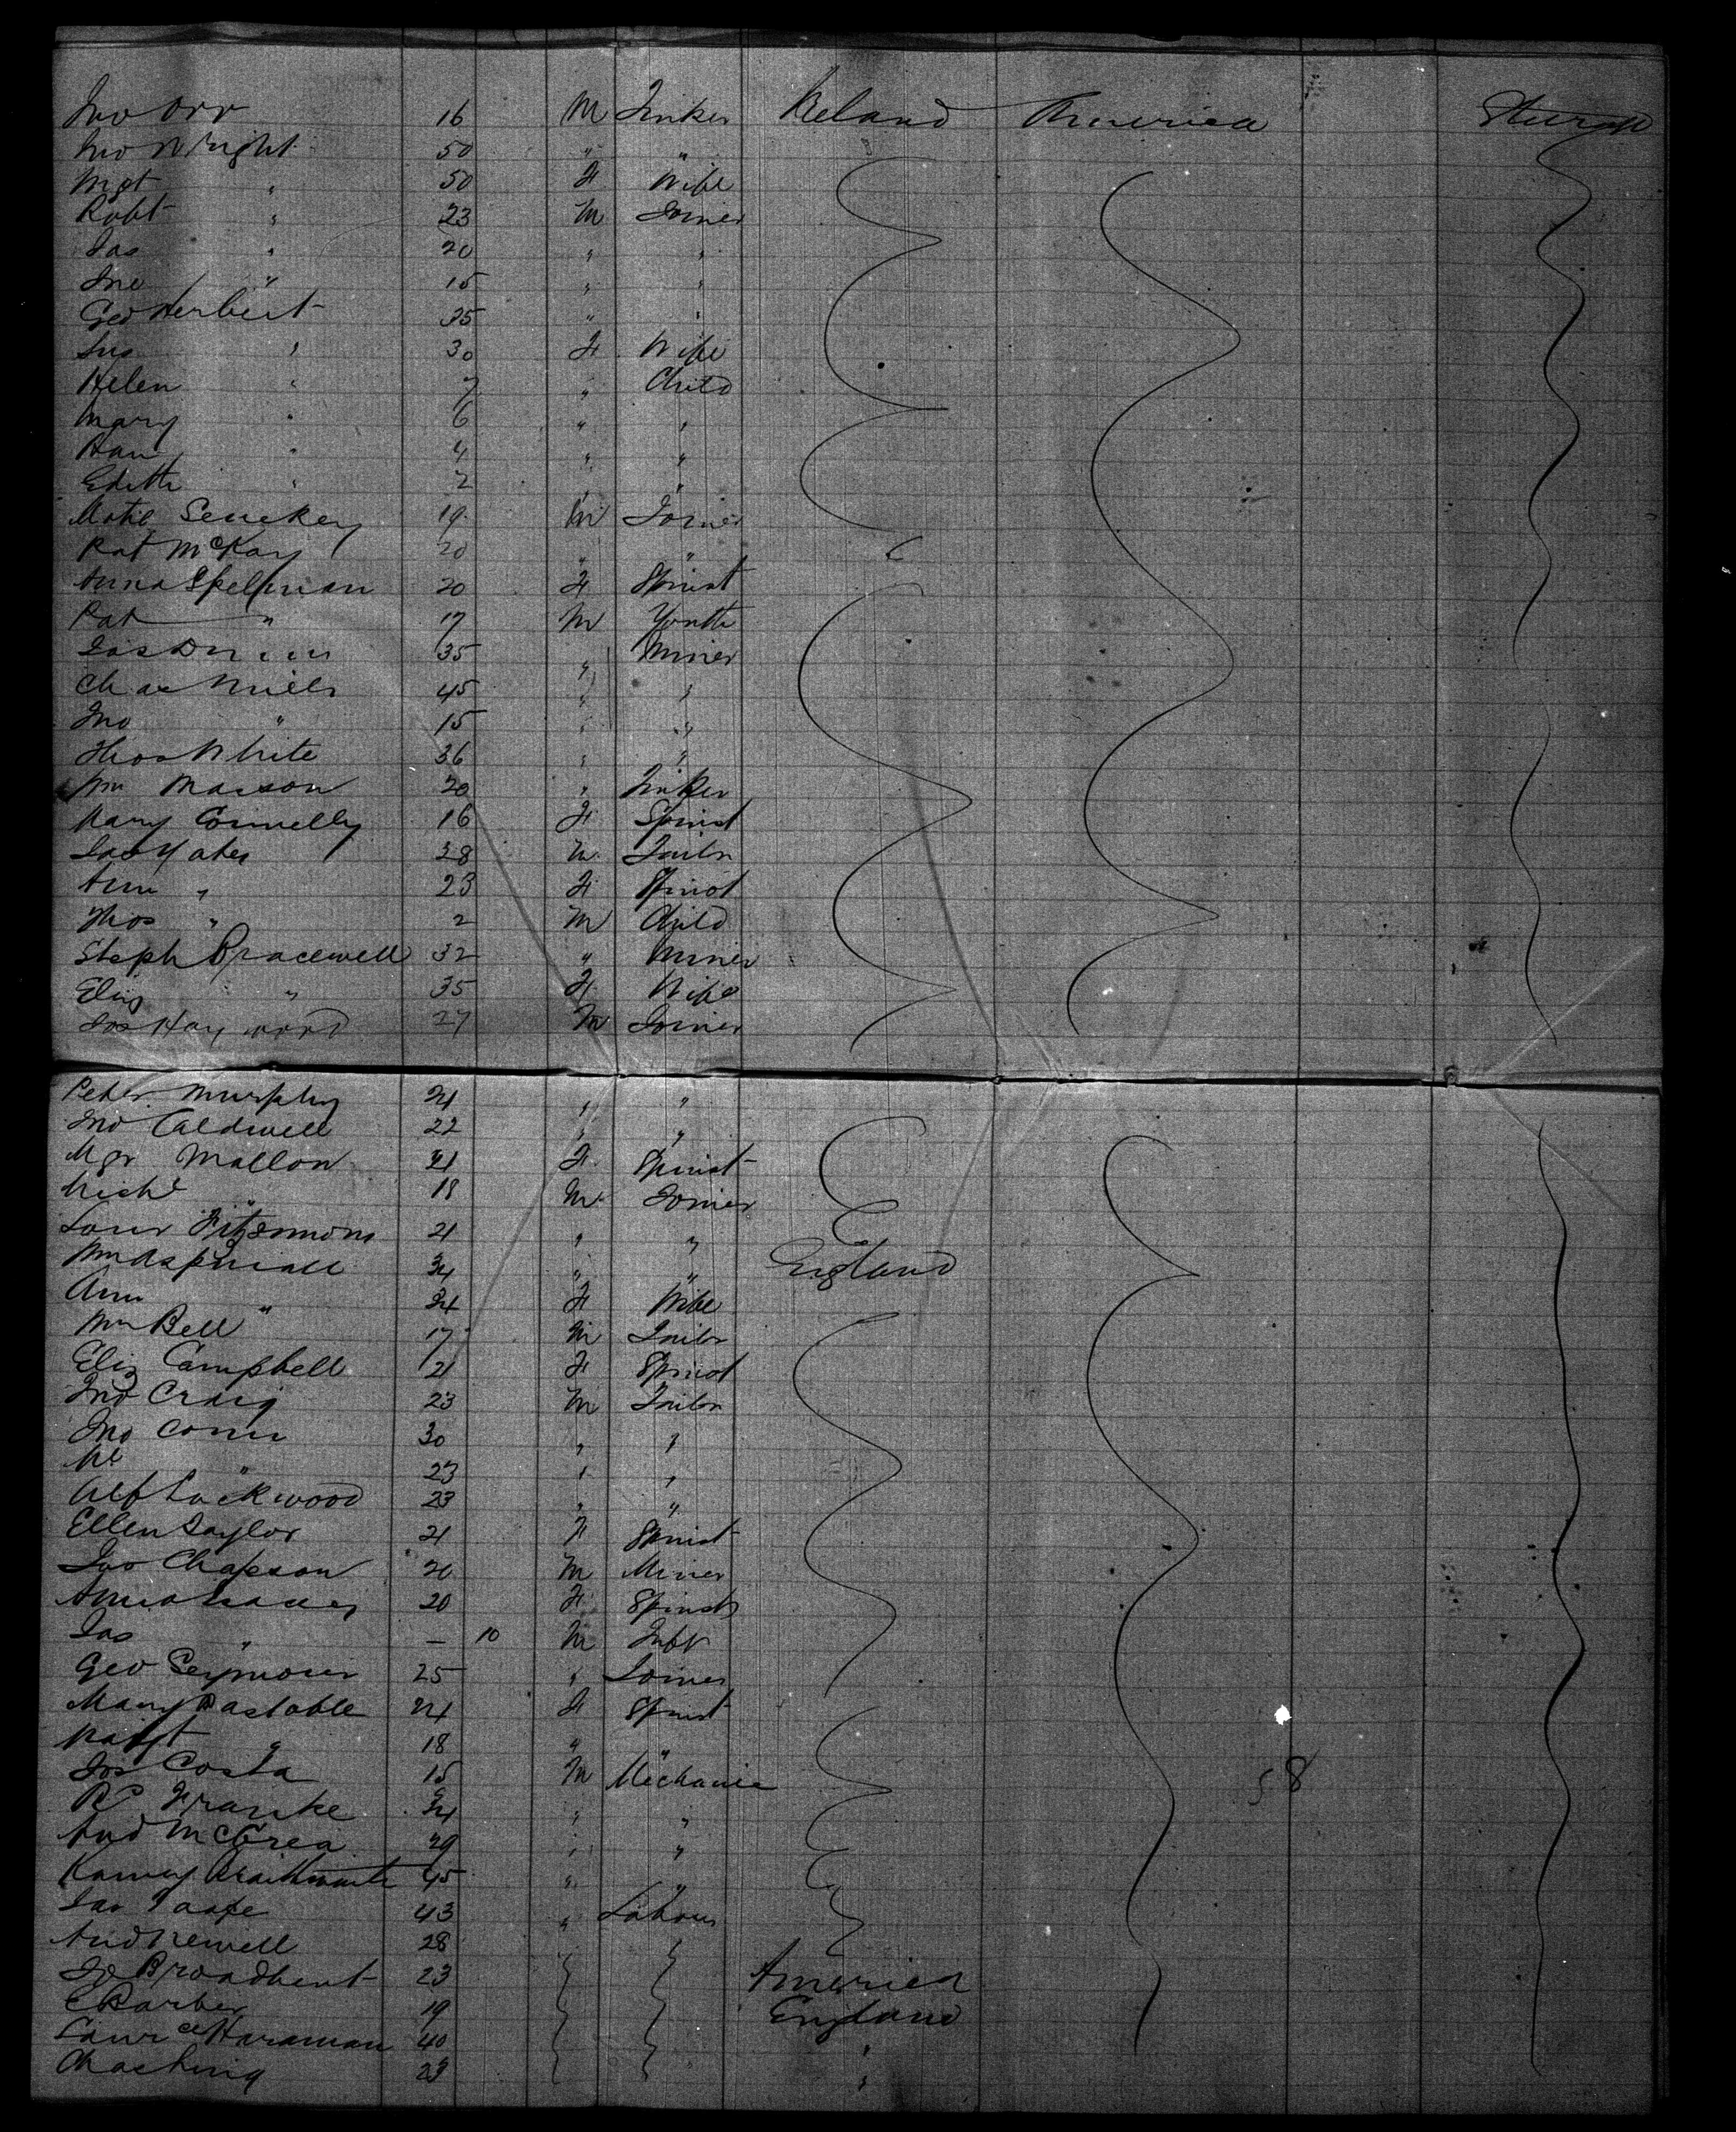 Jno Orr 16 M Tinker Ireland America Steerage
Jno Wright 50 " "
Mgt " 50 F Wife
Robt " 23 M Joiner
Jas " 20 " "
Jno " 15 " "
Geo Herbert 35 " "
" 30 F Wife
Helen " 7 " Child
Mary " 6 " "
Han " 4 " "
Edith " 2 " "
19 M Joiner
Pat McKay 20 " "
Anna Spellman 20 F Spinst
Pat " 17 M Youth
Jas 35 " Miner
Chas Mills 45 " "
Jno " 15 " "
Thos White 36 " "
Wm Maison 20 " Tinker
Mary Connelly 16 F Spinst
Jas Yates 28 M Tailor
Ann " 23 F Spinst
Thos " 2 M Child
Steph Bracewell 32 " Miner
Eliz " 35 F Wife
Jos Haywood 27 M Joiner
Peter Murphy 21 " "
Jno Caldwell 22 " "
Mgr Mallon 21 F Spinst
Michl " 18 M Joiner
Fitzsimmons 21 " "
Wm Aspinall 34 " " England
Ann " 34 F Wife
Wm Bell 17 M Tailor
Eliz Campbell 21 F Spinst
Jno Craig 23 M Tailor
Jno 30 " "
" 23 " "
Alf Lockwood 23 " "
Ellen Taylor 21 F Spinst
Jno Chapson 20 M Miner
20 F Spinst
Jas " — 10 M Inft
Geo Seymour 25 " Joiner
Mary Bastable 24 F Spinst
Margt " 18 " "
Jos Costa 15 M Mechanic 58
Franke 34 " "
And McCrea 29 " "
Braithwaite 45 " "
Jas 43 " Labour
And Newell 28
Jo Broadbent 23 America
C Barber 19 England
Lawrce Haraman 40 "
Chas King 23 "